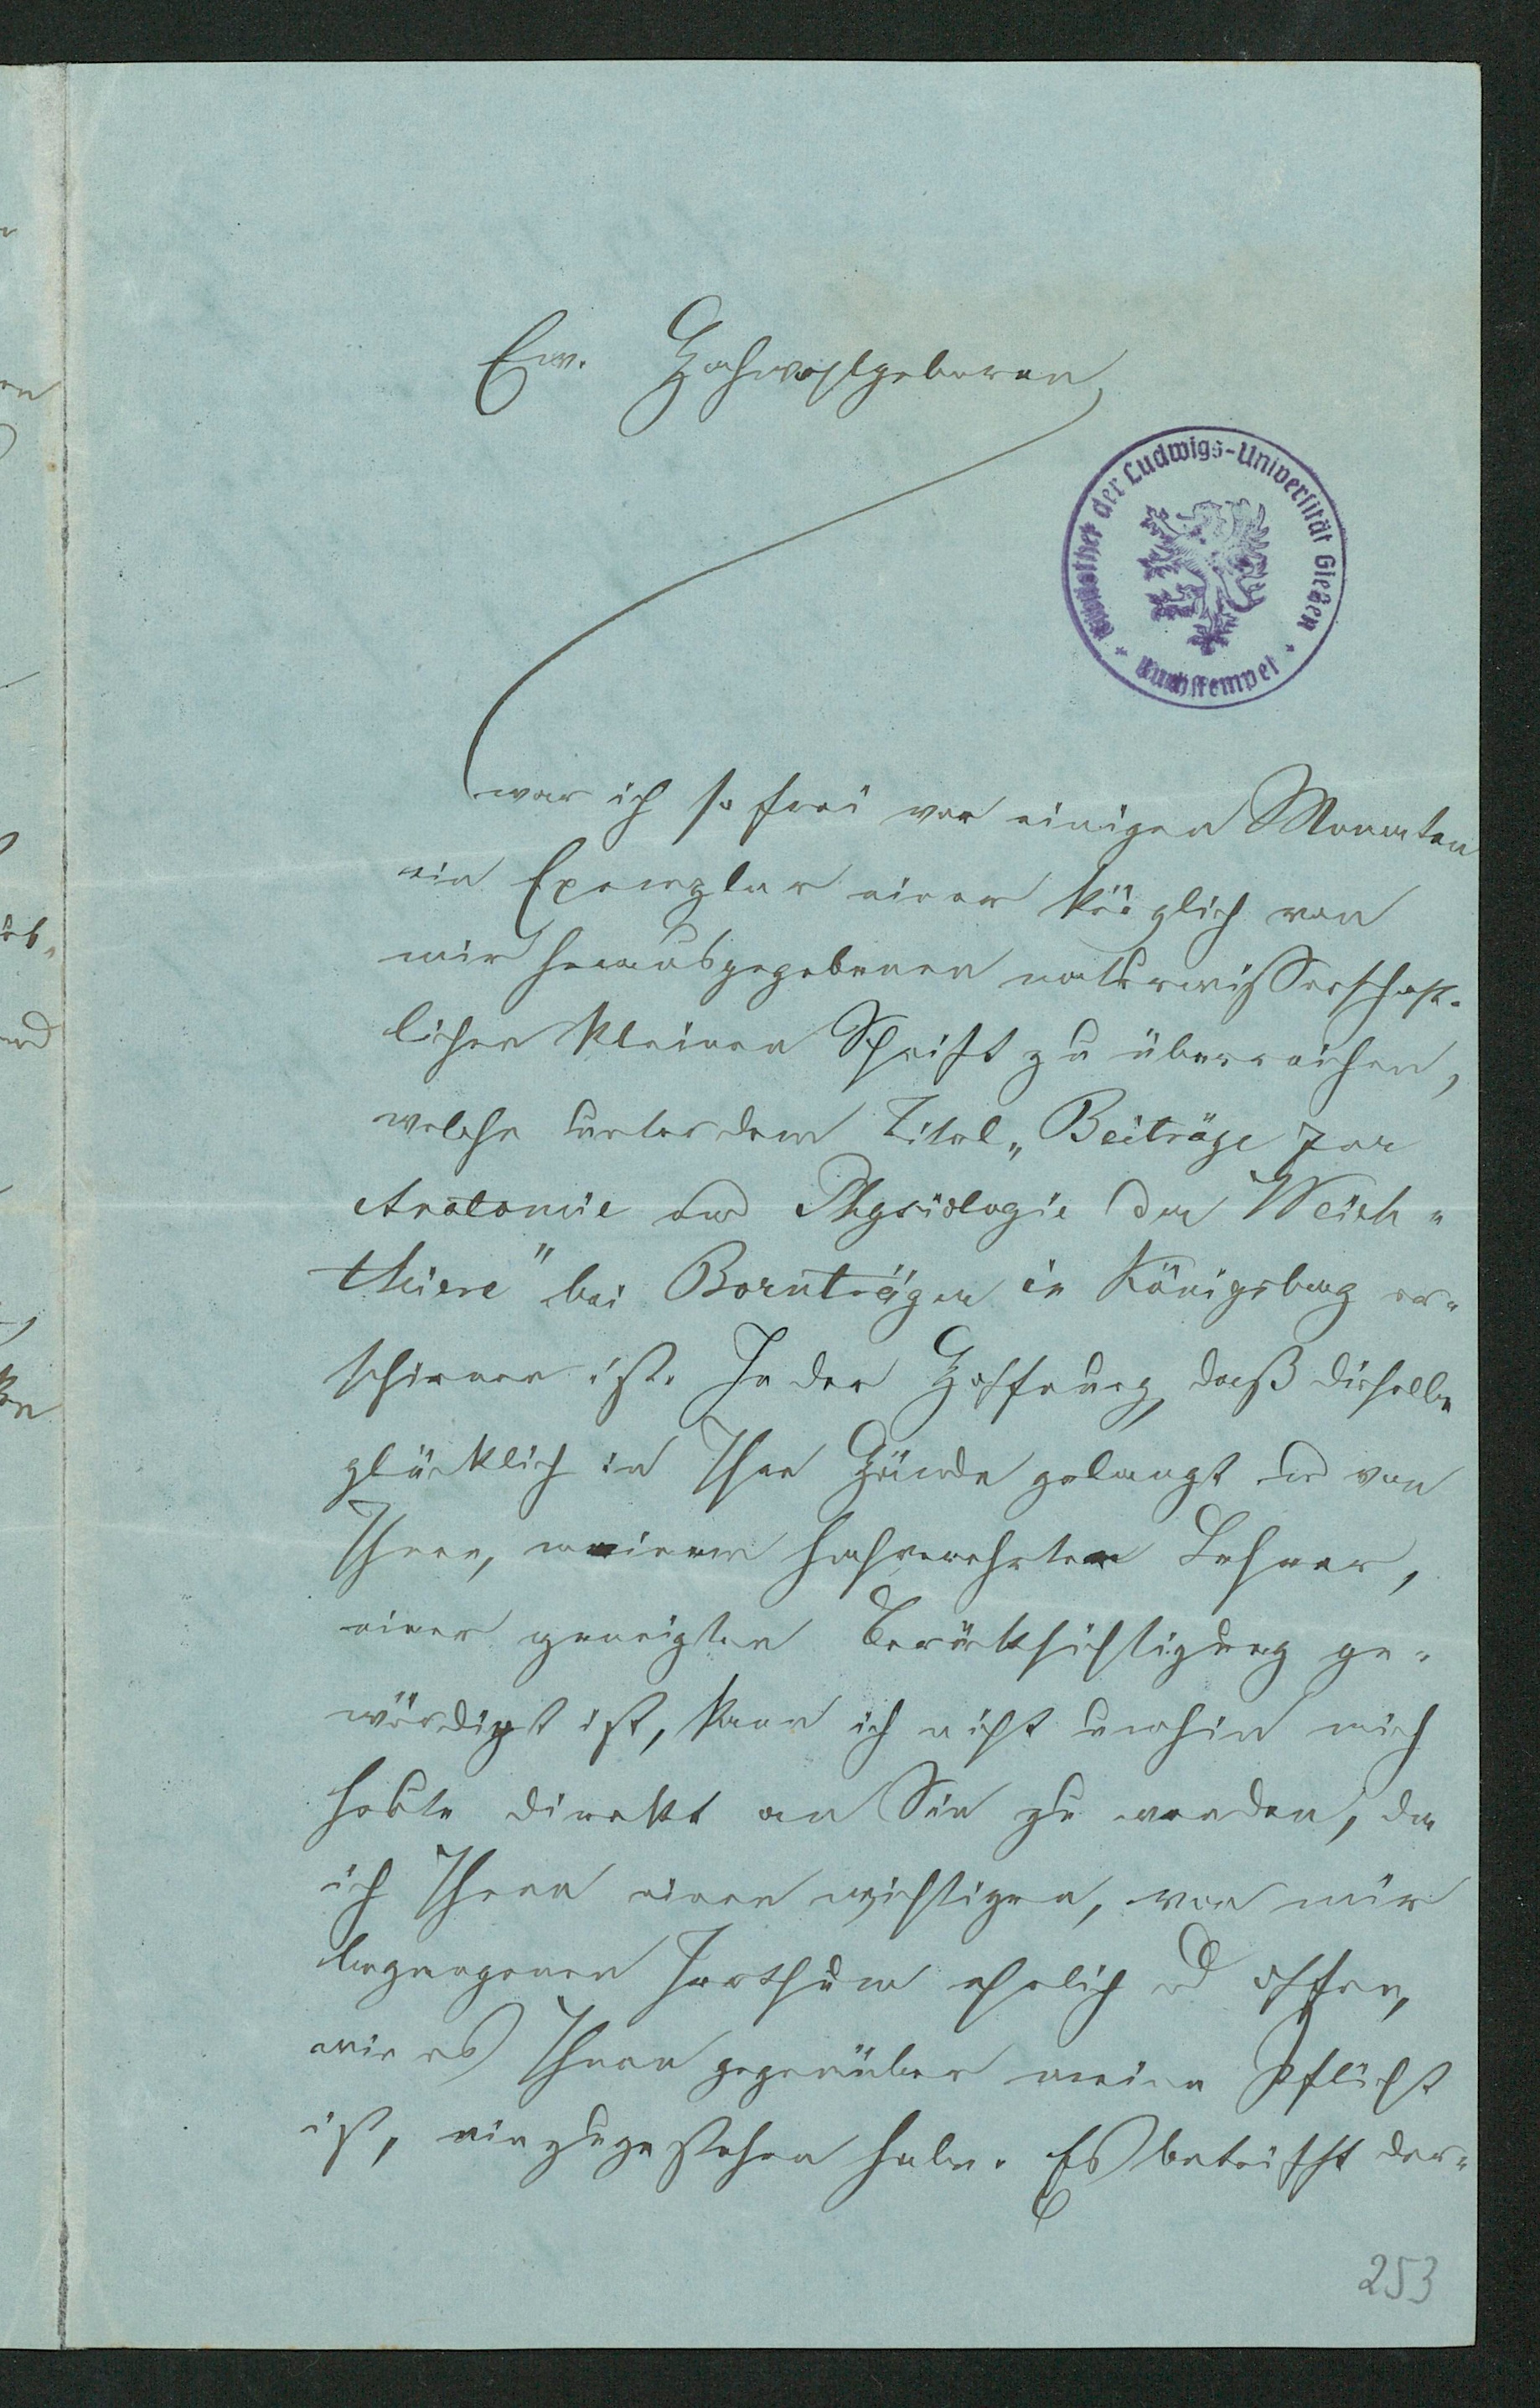 Ew. Hochwohlgeboren
Bibliothek der Ludwigs-Universität Gießen
war ich so frei vor einigen Monaten
ein Exemplar einer kürzlich von
mir herausgegebenen naturwissenschaft-
lichen kleinen Schrift zu überreichen,
welche unter dem Titel „Beiträge zur
Anatomie und Physiologie der Weich-
thiere" bei Bornträger in Königsberg er-
schienen ist. In der Hoffnung, daß dieselbe
glücklich in Ihre Hände gelangt und von
Ihnen, meinem hochverehrten Lehrer,
einer geneigten Berücksichtigung ge-
würdigt ist, kann ich nicht umhin mich
heute direkt an Sie zu wenden, da
ich Ihnen einen wichtigen, von mir
begangenen Irrthum ehrlich und offen,
wie es Ihnen gegenüber meine Pflicht
ist, einzugestehen habe. Es betrifft der-
253